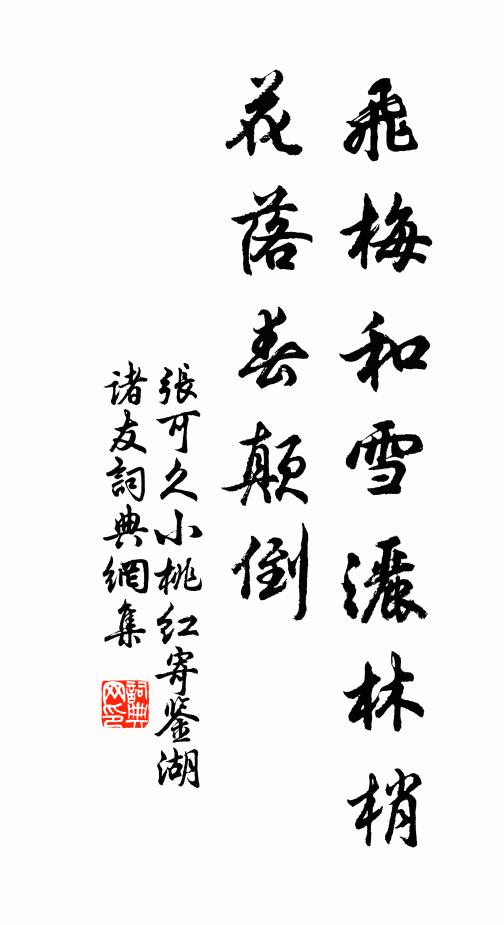 飛梅和雪灑林梢
花落春顛倒
張可久小桃紅寄鑒湖
諸友詞典網集
詞典
网印